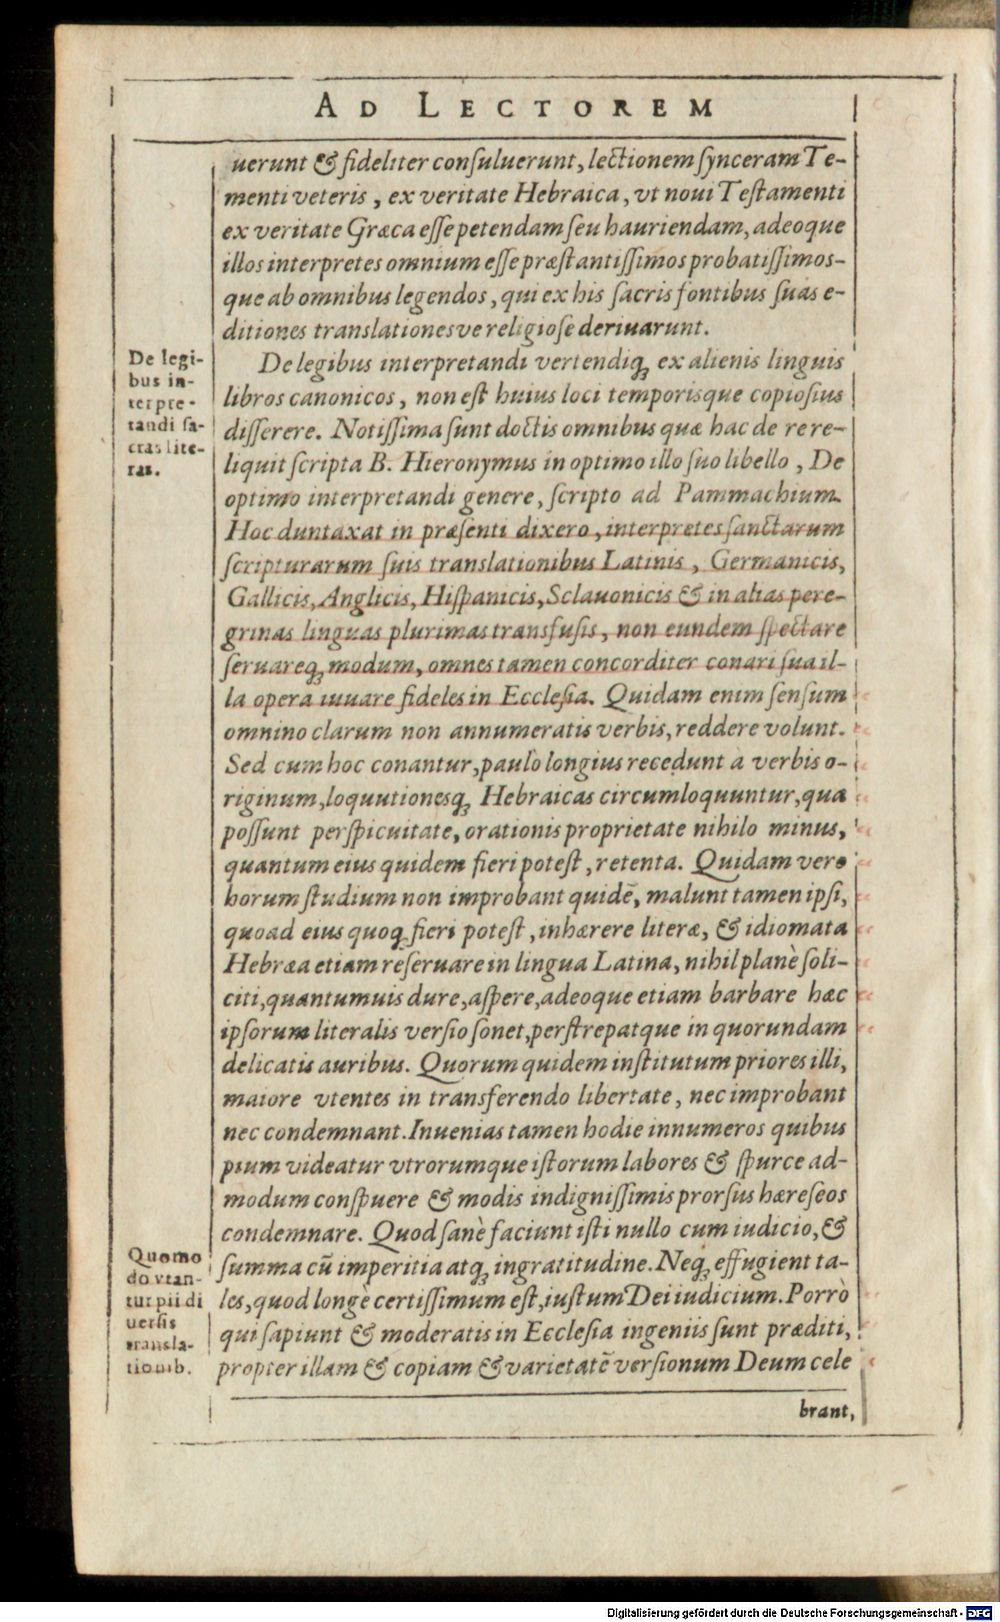 AD LECTOREM
uerunt & fideliter consuluerunt, lectionem synceram Te-
menti veteris, ex veritate Hebraica, vt noui Testamenti
ex veritate Græca esse petendam seu hauriendam, adeoque
illos interpretes omnium esse præstantissimos probatissimos-
que ab omnibus legendos, qui ex his sacris fontibus suas e-
ditiones translationesve religiose deriuarunt.
De legi-
bus in-
terpre-
tandi sa-
cras lite-
ras.
De legibus interpretandi vertendiq; ex alienis linguis
libros canonicos, non est huius loci temporisque copiosius
disserere. Notissima sunt doctis omnibus quæ hac de re re-
liquit scripta B. Hieronymus in optimo illo suo libello, De
optimo interpretandi genere, scripto ad Pammachium.
Hoc duntaxat in præsenti dixero, interpretes sanctarum
scripturarum suis translationibus Latinis, Germanicis,
Gallicis, Anglicis, Hispanicis, Sclauonicis & in alias pere-
grinas linguas plurimas transfusis, non eundem spectare
seruareq; modum, omnes tamen concorditer conari sua il-
la opera iuuare fideles in Ecclesia. Quidam enim sensum
omnino clarum non annumeratis verbis, reddere volunt.
Sed cum hoc conantur, paulò longius recedunt à verbis o-
riginum, loquutionesq; Hebraicas circumloquuntur, qua
possunt perspicuitate, orationis proprietate nihilo minus,
quantum eius quidem fieri potest, retenta. Quidam vero
horum studium non improbant quidē, malunt tamen ipsi,
quoad eius quoq; fieri potest, inhærere literæ, & idiomata
Hebræa etiam reseruare in lingua Latina, nihil planè soli-
citi, quantumuis dure, aspere, adeoque etiam barbare hæc
ipsorum literalis versio sonet, perstrepatque in quorundam
delicatis auribus. Quorum quidem institutum priores illi,
maiore vtentes in transferendo libertate, nec improbant
nec condemnant. Inuenias tamen hodie innumeros quibus
pium videatur vtrorumque istorum labores & spurce ad-
modum conspuere & modis indignissimis prorsus hæreseos
condemnare. Quod sanè faciunt isti nullo cum iudicio, &
Quomo
do vtan-
tur pii di
uersis
transla-
tionib.
summa cū imperitia atq; ingratitudine. Neq; effugient ta-
les, quod longe certissimum est, iustum Dei iudicium. Porrò
qui sapiunt & moderatis in Ecclesia ingeniis sunt præditi,
propter illam & copiam & varietatē versionum Deum cele
brant,
Digitalisierung gefördert durch die Deutsche Forschungsgemeinschaft - DFG